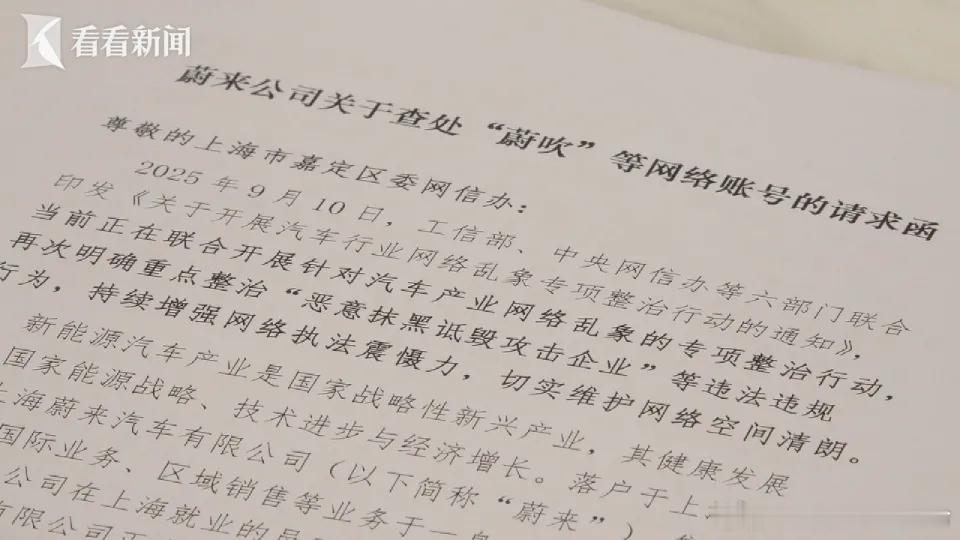 看看新闻
蔚来公司关于查处“蔚吹”等网络账号的请求函
尊敬的上海市嘉定区委网信办：
2025年9月10日，工信部、中央网信办等六部门联合
印发《关于开展汽车行业网络乱象专项整治行动的通知》，
当前正在联合开展针对汽车产业网络乱象的专项整治行动，
再次明确重点整治“恶意抹黑诋毁攻击企业”等违法违规
行为，持续增强网络执法震慑力，切实维护网络空间清朗。
新能源汽车产业是国家战略性新兴产业，其健康发展
国家能源战略、技术进步与经济增长。落户于上
上海蔚来汽车有限公司（以下简称“蔚来”）
国际业务、区域销售等业务于一身
公司在上海就业的员
有限公司